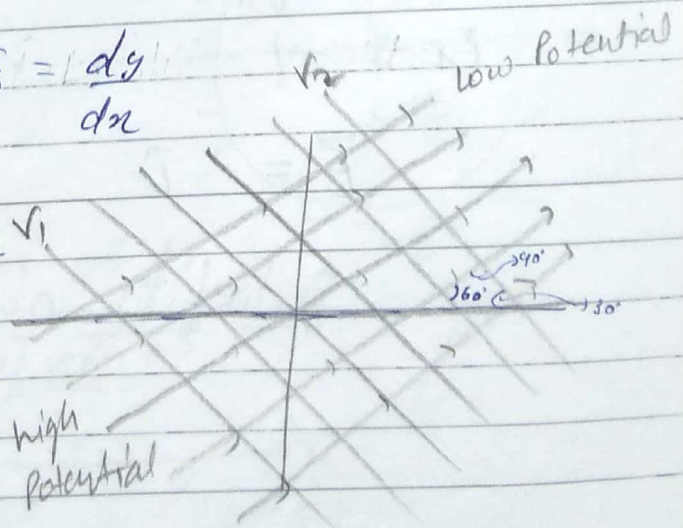 = dy
dx
V2
Low Potential
V1
90°
60°
30°
high
Potential